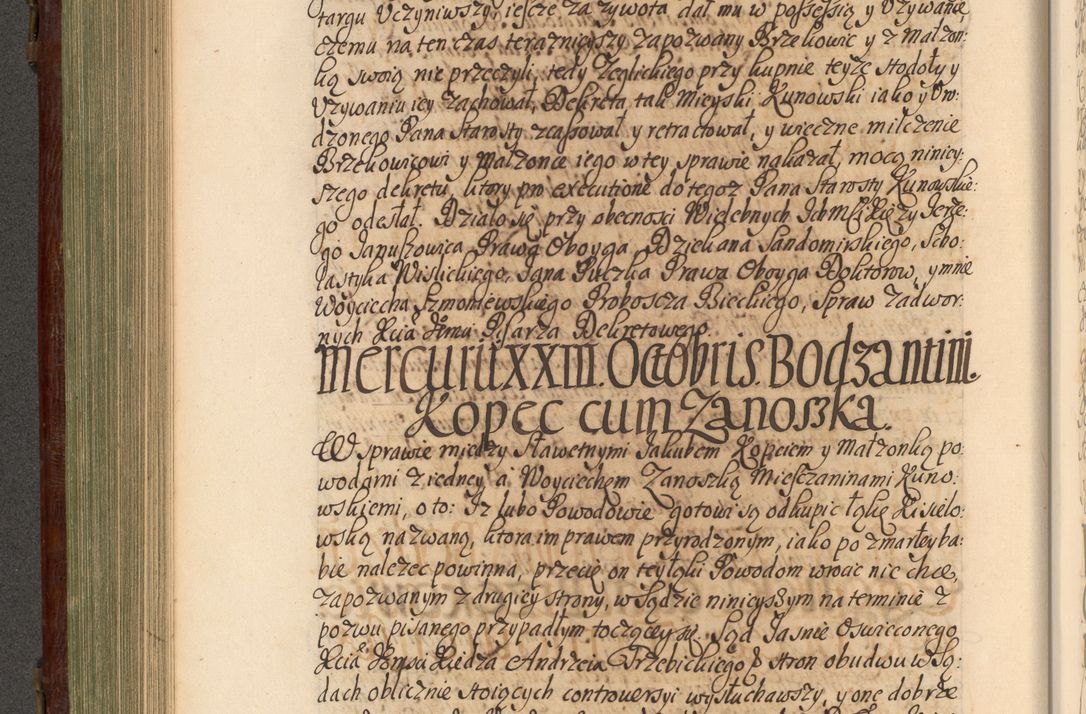 targu Uczyniwszy, iescze za zywota dał mu w possessią y Uzywanie,
czemu na ten czas teraznieyszy zapozwany Brzekowic y z Małzon:
ką swoią nie przeczyli, tedy Zeglickiego przy kupnie teyże stodoły y
Uzywaniu iey zachował, Dekreta tak Mieyski Kunowski iako y Vro-
dzonego Pana Starosty zcassował y retractował, y wieczne milczenie
Brzekowicowi y Małzonce iego w tey sprawie nakazał, mocą niniey:
szego dekretu, ktory pro executione do tegoz Pana Starosty Kunowskie:
go odesłał. Działo się przy obecnosci Wielebnych Ichm Xięży Jerze:
go Januszowica Prawa Oboyga Dziekana Sandomirskiego, Scho:
lastyka Wislickiego, Jana Puczka Prawa Oboyga Doktorow, y mnie
Woyciecha Szmoniewskiego Proboscza Bieckiego, Spraw Zadwor:
nych Xcia Jmci Pisarza Dekretowego.
Mercurii XXIII. Octobris. Bodzantini.
Kopec cum Zanoszka.
W sprawie między Sławetnymi Jakubem Kopciem y Małzonką po:
wodami z iedney, a Woyciechem Zanoszką Miesczaninami Kuno:
wskiemi, o to: Iz lubo Powodowie gotowi są odkupic łąkę Kisielo:
wską nazwaną, ktora im prawem przyrodzonym, iako po zmarłey ba:
bie nalezec powinna, przecię on tey łąki Powodom wrocic nie chce,
zapozwanym z drugiey strony, w Sądzie ninieyszym na terminie z
pozwu pisanego przypadłym toczącey się. Sąd Jasnie Oswieconego
Xcia Jmsci Xiedza Andrzeia Trzebickiego stron obudwu w Są:
dach oblicznie stoiących controversyi wysłuchawszy, y one dobrze